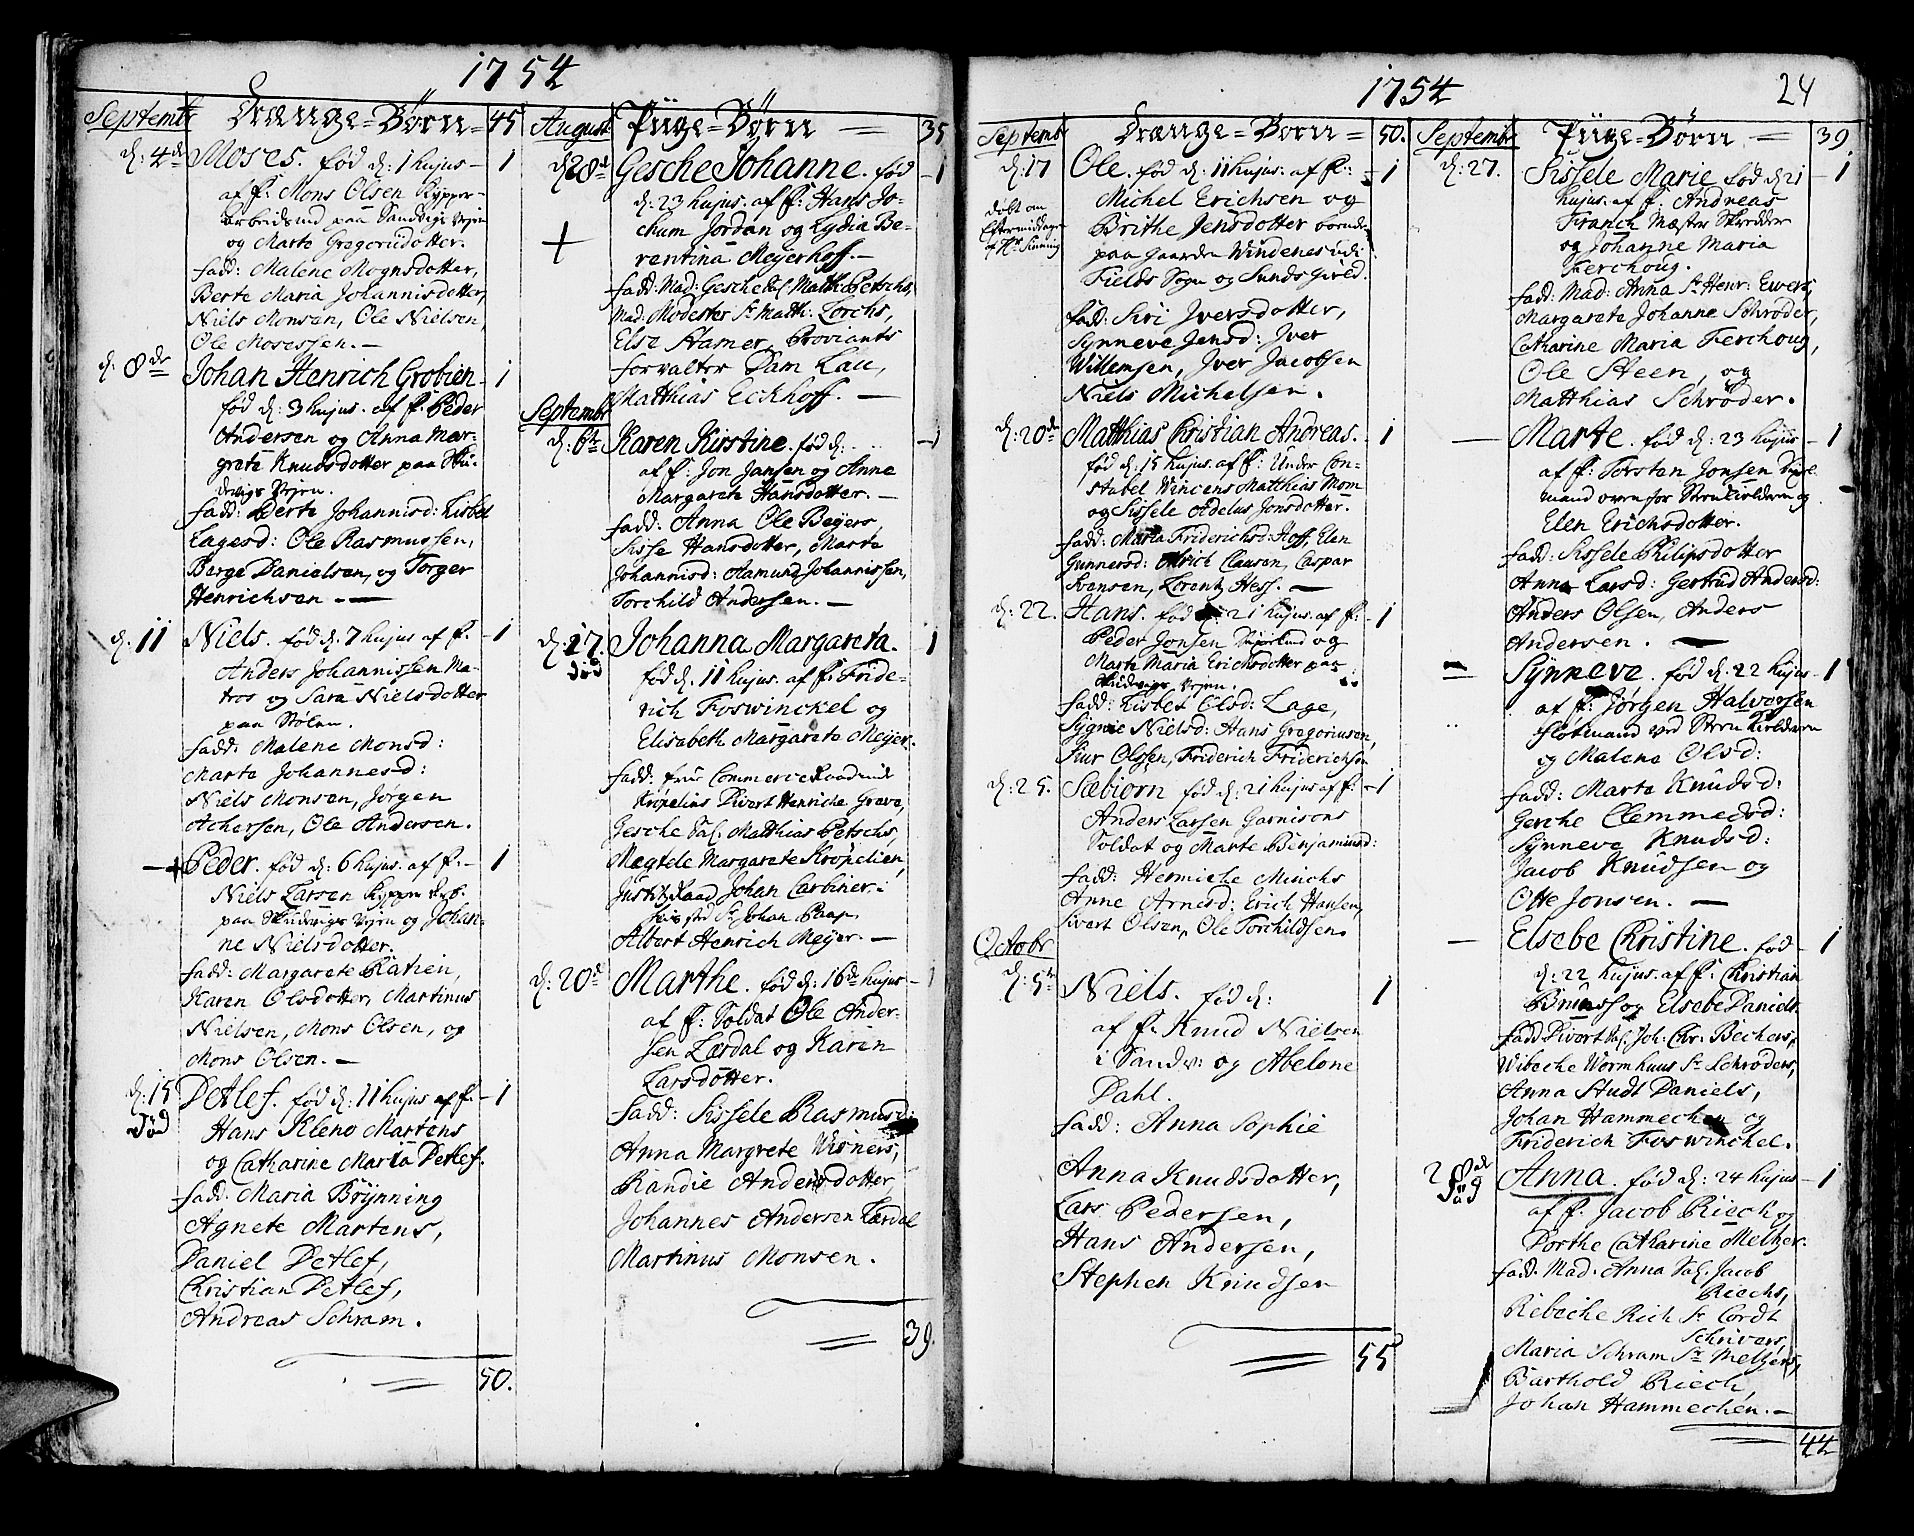 1754
Septembr Drænge-Börn 45
d: 4de Moses. fød d: 1 hujus 1
af f: Mons Olsen Rypper-
arbeidsmd paa Sandvigs Vejen
og Marte Gregoriidotter.
fadd: Malene Mognsdotter,
Berte Maria Johannisdotter,
Niels Monsen, Ole Nielsen,
Ole Mosessen.
d: 8de Johan Henrich Grobien 1
fød d: 3 hujus. af f: Peder
Andersen og Anna Mar-
grete Knudsdotter paa Sku-
devigs Vejen.
fadd: Berte Johannisd: Lisbet
Lagesd: Ole Rasmussen,
Berge Danielsen, og Torger
Henrichsen
d. 11 Niels. fød d. 7 hujus af f. 1
Anders Johannissen Ma-
tros og Sara Nielsdotter
paa Stölen.
fadd: Malene Monsd:
Marte Johannesd:
Niels Monsen, Jørgen
Achersen, Ole Andersen.
Peder. fød d: 6 hujus. af f. 1
Niels Larsen Rypper Arb.
paa Skudevigs Vejen og Johan-
ne Nielsdotter.
fadd: Margarete Rathien,
Karen Olsdotter, Martinus
Nielsen, Mons Olsen, og
Mons Olsen.
d: 15 Detlef. fød d: 11 hujus af f. 1
död
Hans Kleno Martens
og Catharine Maria Detlef.
fadd. Maria Brynning
Agnete Martens,
Daniel Detlef,
Christian Detlef,
Andreas Schram.
50.
August Piige-Börn 35
d28d Gesche Johanne. fød 1
d: 23 hujus. af f: Hans Jo-
chum Jordan og Lydia Be-
rentina Meijerhoff.
fadd: Mad: Gesche Sal. Matth: Petschs,
Mad: Modester Sr Matth: Lorchs,
Else Hamer, Proviants
forvalter Dam Lau,
Matthias Eckhoff.
Septembr
d: 6te Karen Kirstine. fød d: 1
af f: Jon Jansen og Anne
Margarete Hansdotter.
fadd: Anna Ole Beyers,
Sisse Hansdotter, Marte
Johannisd: Aamund Johannissen,
Torchild Andersen.
d: 17. Johanna Margareta. 1
död
fød d. 11 hujus. af f: Fride-
rich Foswinckel og
Elisabeth Margarete Meijer.
fadd: frue Commerce Raadinde
Kröpelins Divert Henriche Greve,
Gesche Sal. Matthias Petschs,
Magtele Margarete Kröpelien,
Justitz Raad Johan Carbiner:
Johan Paap.
Albert Henrich Meijer.
d: 20d Marthe. fød d: 16de hujus 1
af f: Soldat Ole Ander-
sen Lærdal og Karen
Larsdotter.
fadd: Sissele Rasmusd:
Anna Margrete Wörners,
Randie Andersdotter,
Johannes Andersen Lærdal
Martinus Monsen.
39.
1754 24
Septembr Drænge-Born 50.
d: 17 Ole. fød d: 11 hujus. af f: 1
döbt om
Eftermiddagen
af Hr Sinning
Michel Erichsen og
Brithe Jensdotter boende
paa gaarden Windenes udi
Fields Sogn og Sunds gield.
fadd: Siri Iversdotter,
Synneve Jensd: Iver
Willemsen, Iver Jacobsen
Niels Michelsen.
d: 20de Matthias Christian Andreas. 1
fød d. 15 hujus. af f: Under Con-
stabel Wincens Matthias Mom
og Sissele Adelus Jonsdotter.
fadd: Maria Friderichsd: Hoff, Elen
Gunnersd: Ulrich Clausen, Caspar
Svensen, Lorentz Hess.
d: 22. Hans. fød d: 21 hujus. af f: 1
Peder Jonsen og
Marte Maria Erichsdotter paa
Skudevigs Vejen.
fadd: Lisbet Olsd: Lage,
Sygnie Nielsd: Hans Gregoriusen,
Siur Olssen, Friderich Friderichsen
d: 25. Sæbiorn fød d: 21 hujus af f: 1
Anders Larsen Garnisons
Soldat og Marte Benjaminsd:
fadd: Hermiche Munchs
Anne Arnesd: Erich Hansen,
Sivert Olsen, Ole Torchildsen.
Octobr
d: 5te Niels. fød d: 1
af f. Knud Nielsen
i Sandv: og Abelone
Dahl.
fadd: Anna Sophie
Anna Knudsdotter,
Lars Pedersen,
Hans Andersen,
Stephen Knudsen
55
Septembr Piige-Börn 39
d: 27. Sissele Marie fød d 21 1
hujus. af f: Andreas
Franck Mæster Skredder
og Johanne Maria
Ferchoug.
fadd: Mad: Anna Sr Henr: Ewers,
Margarete Johanne Schrøder,
Catharine Maria Ferchoug,
Ole Steen, og
Matthias Schrøder.
Marte. fød d: 23 hujus 1
af f: Torstan Jonsen
mand oven for Steenkielderen og
Elen Erichsdotter.
fadd: Sissele Philipsdotter
Anne Larsd: Gertrud Andersd:
Anders Olsen, Anders
Andersen.
Synneve. fød d: 22 hujus 1
af f: Jørgen Halvorsen
Fløtmand ved Steen Kielderen
og Malene Olsd:
fadd: Marte Knudsd:
Gerche Clemmedsd:
Synneve Knudsd:
Jacob Knudsen og
Otte Jonsen.
Elsebe Christine. fød 1
d: 22 hujus. af f: Christian
Bruns og Elsebe Daniels.
fadd Divert Sal. Joh: Chr: Bechers,
Wibeche Wormhuus Sr Schröders,
Anna Studt Daniels,
Johan Hammechen og
Friderich Foswinckel.
28de Anna. fød d: 24 hujus 1
död
af f. Jacob Riech og
Dorthe Catharine Meltzer.
fadd. Mad: Anna Sal. Jacob
Riechs,
Rebeche Rich Sr Cordt
Schrivers,
Maria Schram Sr Meltzers,
Barthold Riech,
Johan Hammechen.
44